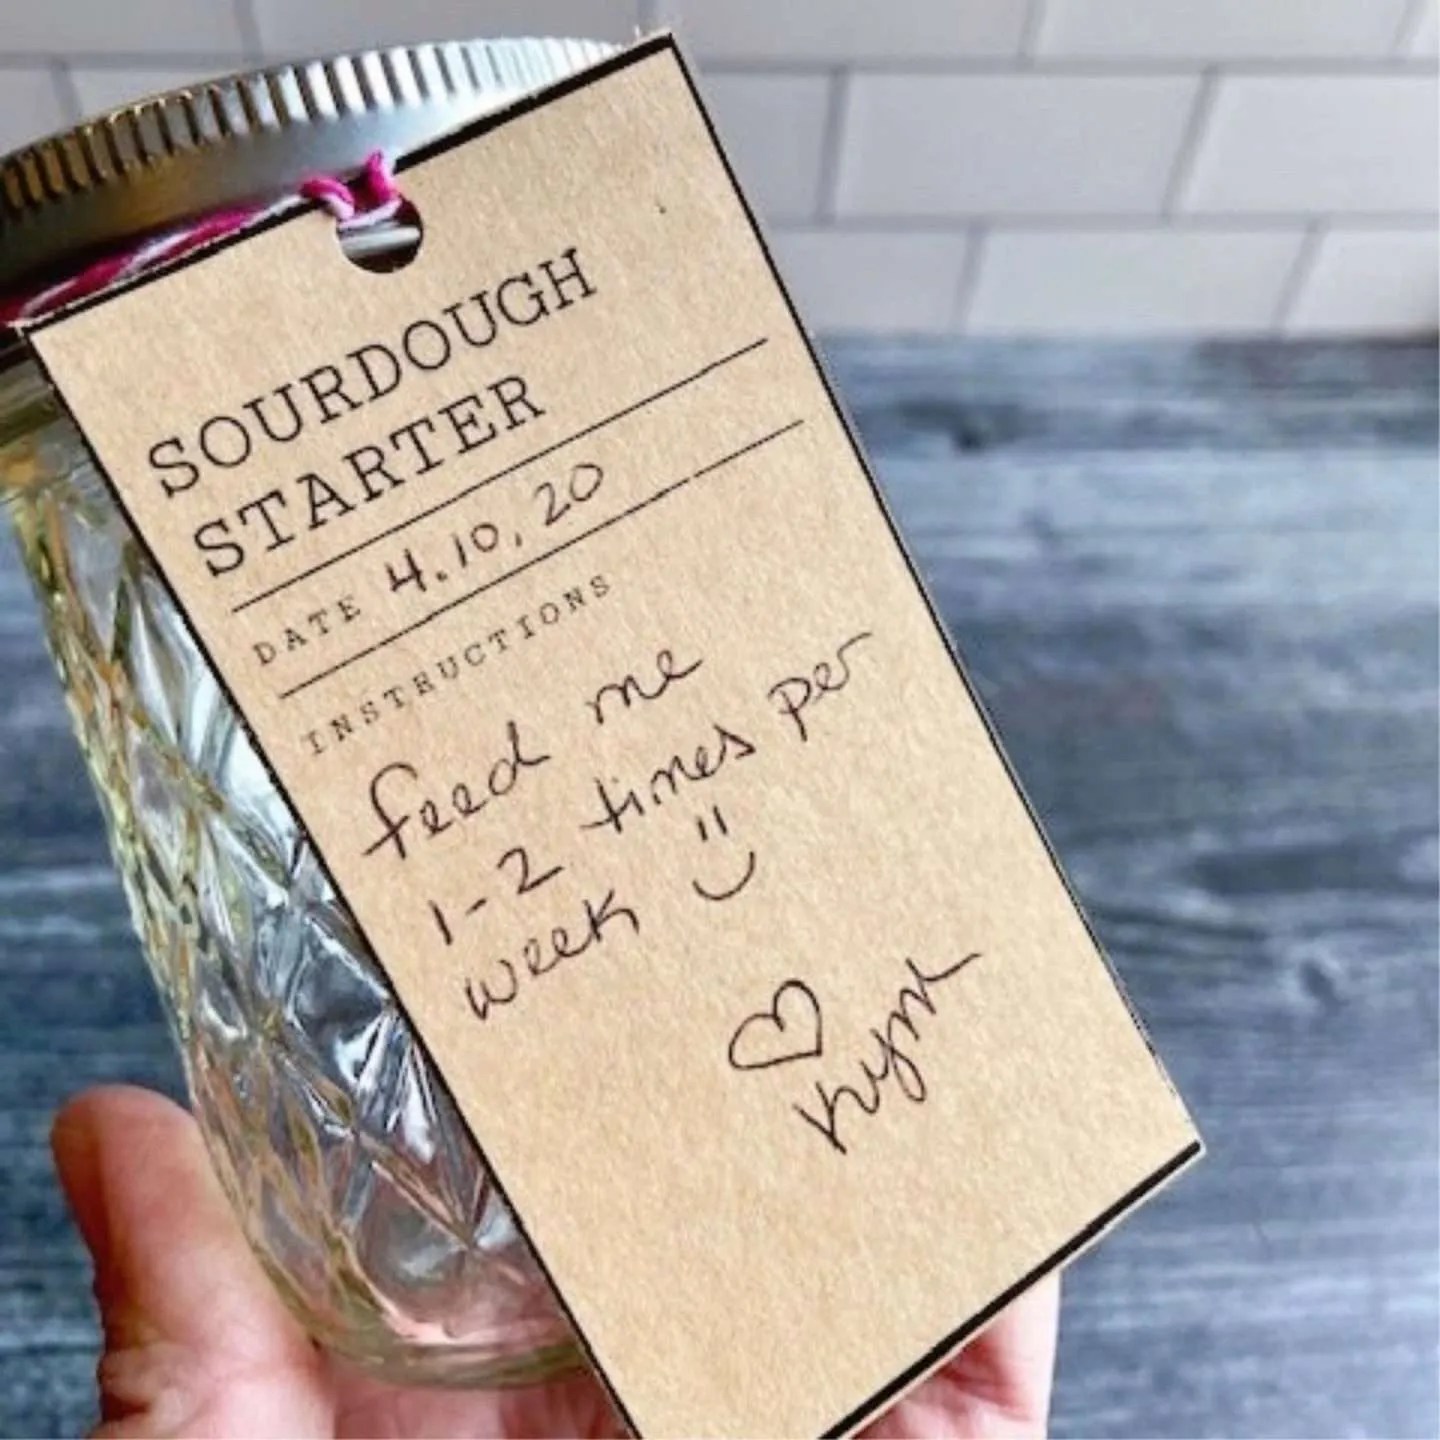 SOURDOUGH
STARTER
DATE 4.10.20
INSTRUCTIONS
feed me
1-2 times per
week